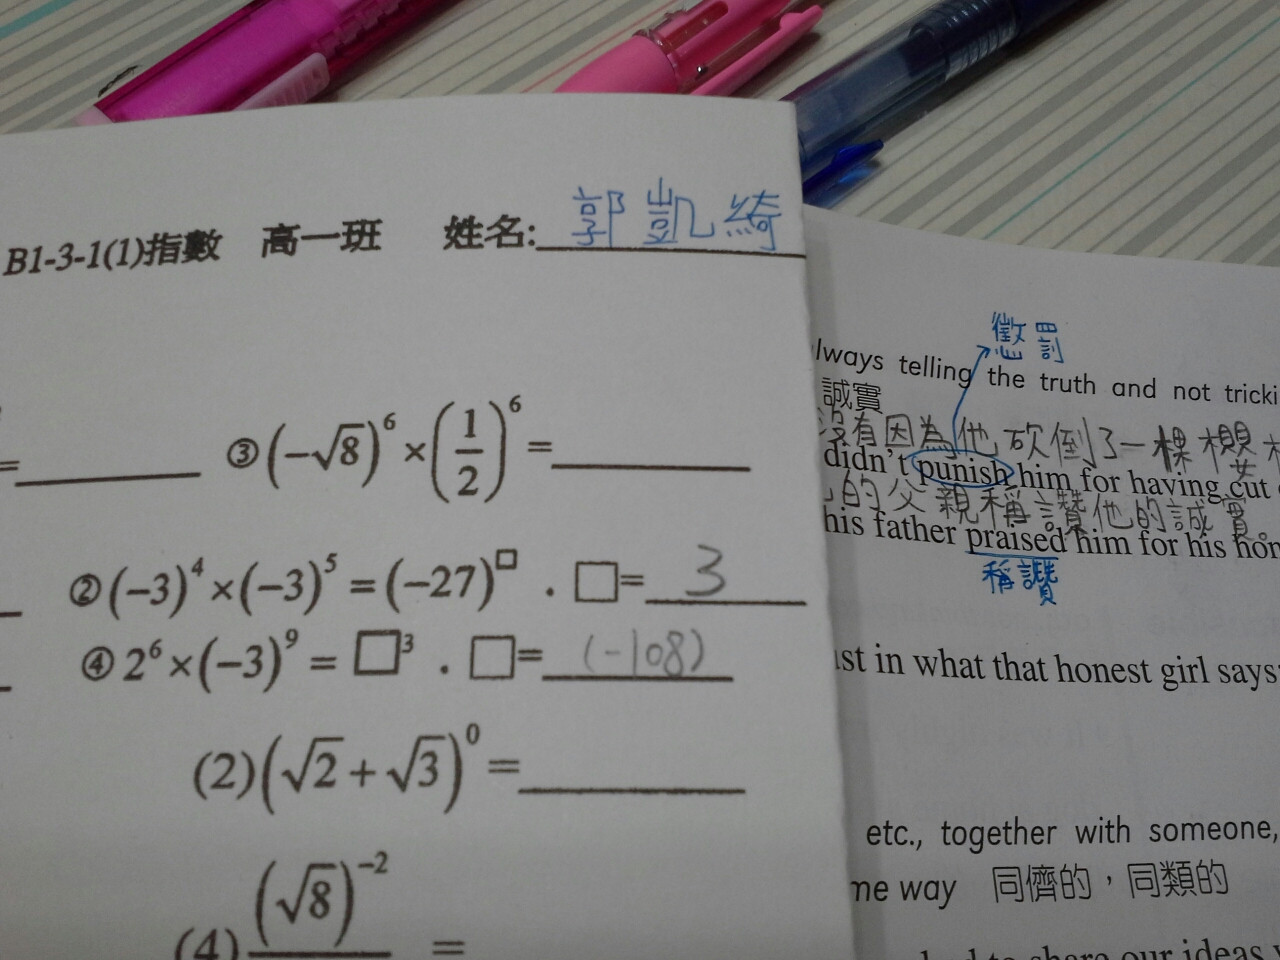 B1-3-1(1)指數 高一班 姓名:郭凱綺
= ③(-√8)^6×(1/2)^6=
②(-3)^4×(-3)^5=(-27)^□ . □=3
④2^6×(-3)^9=□^3 . □=(-108)
(2)(√2+√3)^0=
(4)(√8)^-2 =
懲罰
telling the truth and not
誠實
沒有因為他砍倒了一棵櫻
didn't punish him for having cut
的父親稱讚他的誠實。
his father praised him for his
稱讚
in what that honest girl says
etc., together with someone,
way 同儕的,同類的
to share our ideas